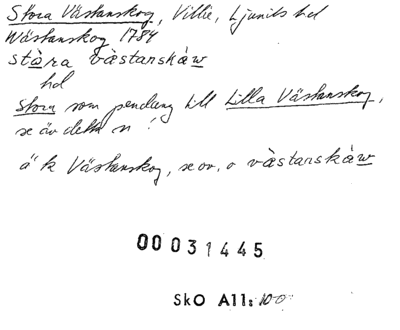 Stora Västanskog, Villie, Ljunits hd
Wästanskog 1784
stàra västanskáw
hd
Stora som pendang till Lilla Västanskog,
se äv detta n!
ä k Västanskog, se ov. o västanskáw
00031445
SkO All: 100